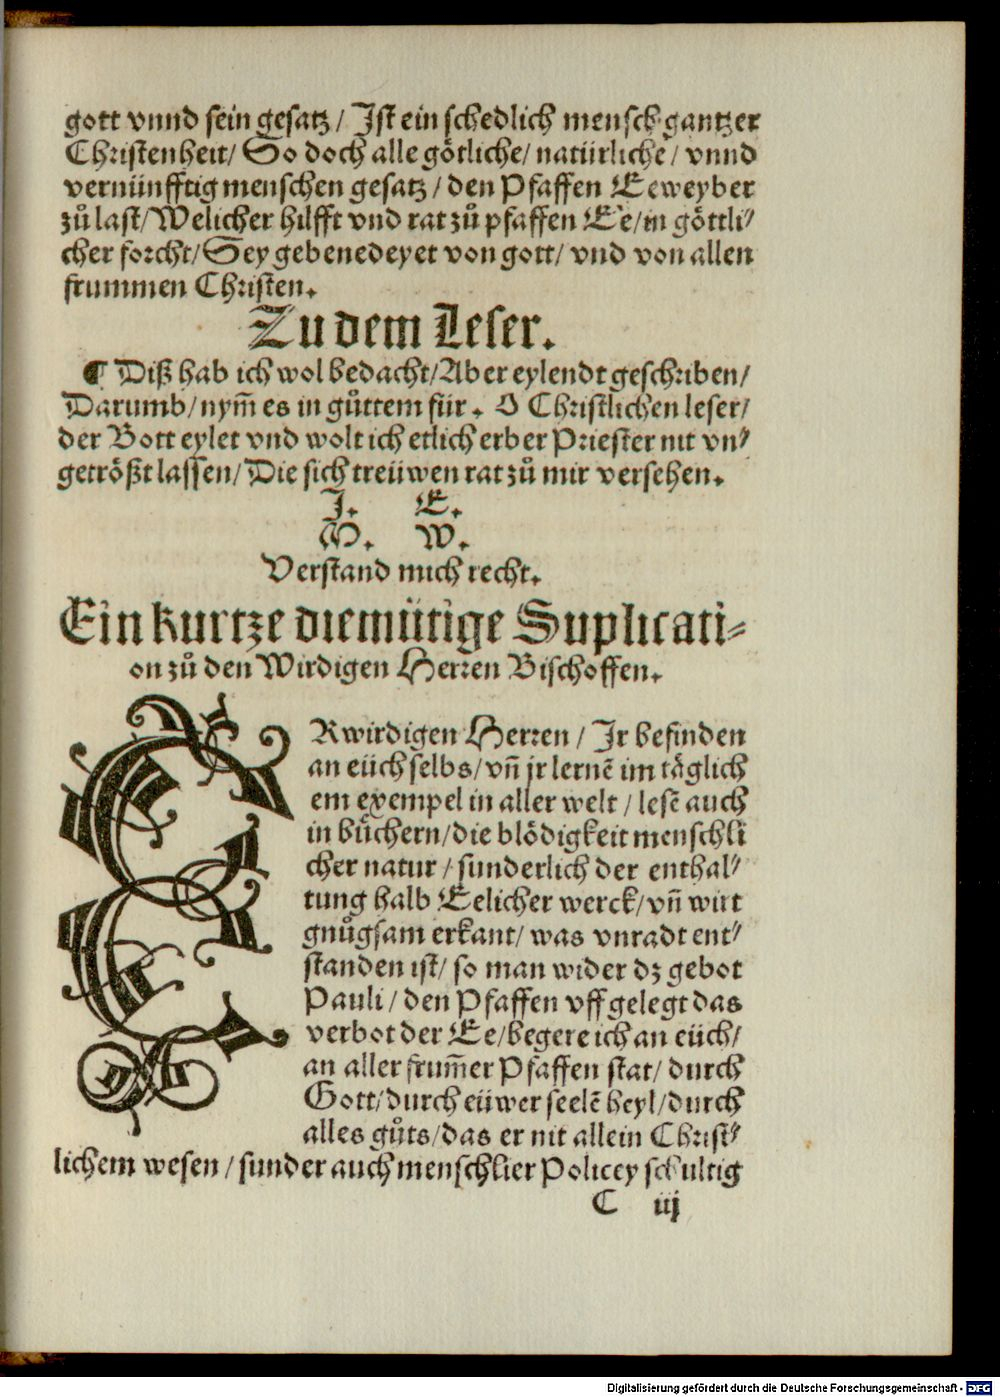 gott vnnd sein gesatz / Ist ein schedlich mensch gantzer
Christenheit / So doch alle götliche / natürliche / vnnd
vernünfftig menschen gesatz / den Pfaffen Eeweyber
zů last / Welicher hilfft vnd rat zů pfaffen Ee / in göttli⸗
cher forcht / Sey gebenedeyet von gott / vnd von allen
frummen Christen.
Zu dem Leser.
¶ Diß hab ich wol bedacht / Aber eylendt geschriben /
Darumb / nym̃ es in gůttem für. O Christlichen leser /
der Bott eylet vnd wolt ich etlich erber Priester nit vn⸗
getrößt lassen / Die sich treüwen rat zů mir versehen.
J. E.
M. W.
Verstand mich recht.
Ein kurtze diemütige Suplicati⸗
on zů den Wirdigen Herren Bischoffen.
ERwirdigen Herren / Ir befinden
an eüch selbs / vñ jr lernẽ im täglich
em exempel in aller welt / lesẽ auch
in bůchern / die blödigkeit menschli
cher natur / sunderlich der enthal⸗
tung halb Eelicher werck / vñ wirt
gnůgsam erkant / was vnradt ent⸗
standen ist / so man wider dz gebot
Pauli / den Pfaffen vff gelegt das
verbot der Ee / begere ich an eüch /
an aller frum̃er Pfaffen stat / durch
Gott / durch eüwer seelẽ heyl / durch
alles gůts / das er nit allein Christ⸗
lichem wesen / sunder auch menschlier Policey schultig
C iij
Digitalisierung gefördert durch die Deutsche Forschungsgemeinschaft - DFG